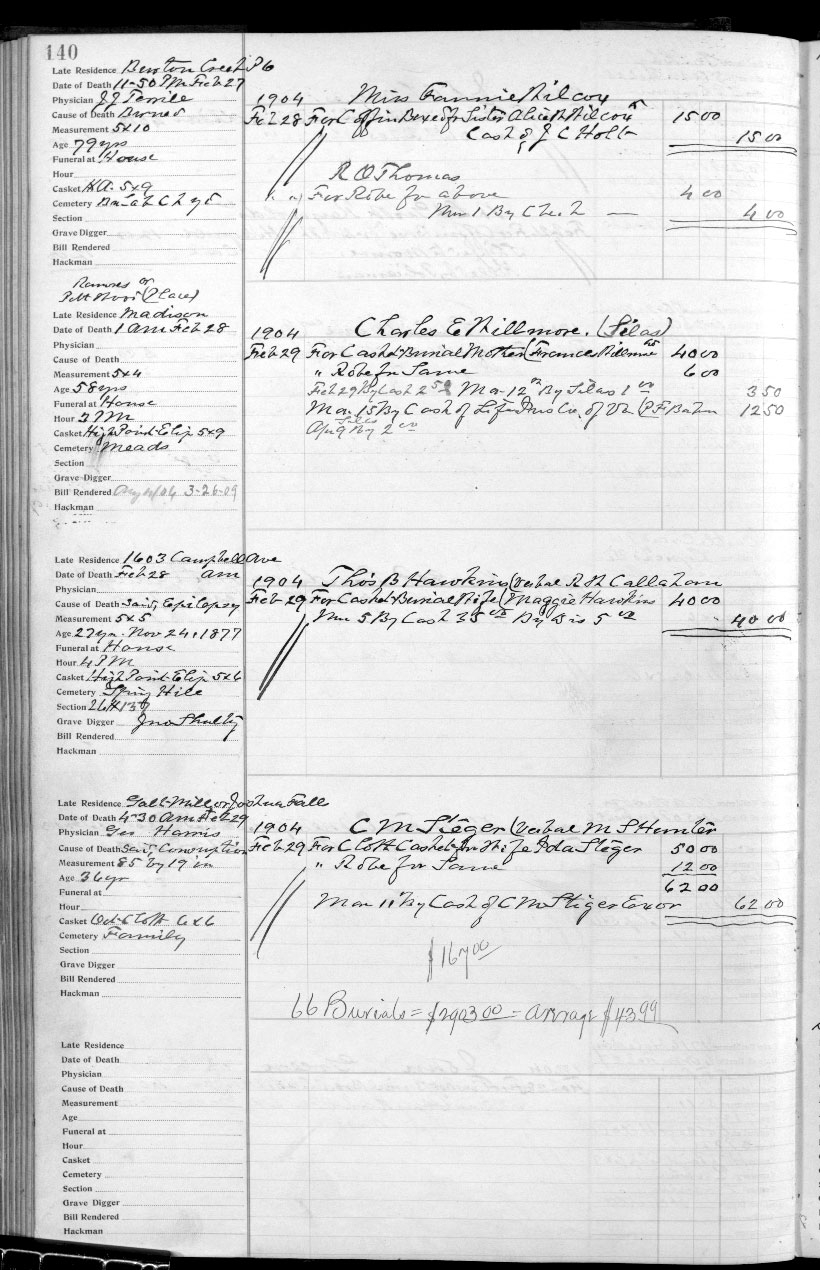 140
Late Residence Burton Creek P 6
Date of Death 11-50 PM Feb 27
Physician J J Terrill
Cause of Death Burned
Measurement 5x10
Age 79 yrs
Funeral at House
Hour
Casket 5x9
Cemetery
Section
Grave Digger
Bill Rendered
Hackman
1904 Miss Fannie Wilcox
Feb 28 For Coffin Boxed for Sister Alice Wilcox 15 00
Cash of J C Holt 15 00
R O Thomas
" " For Robe for above 4 00
Mar 1 By Check — 4 00
(Place)
Late Residence Madison
Date of Death 1 am Feb 28
Physician
Cause of Death
Measurement 5x4
Age 58 yrs
Funeral at House
Hour 3 PM
Casket High Point Elip 5x9
Cemetery Meads
Section
Grave Digger
Bill Rendered 3-26-09
Hackman
1904 Charles E Willmore. (Silas)
Feb 29 For Casket & Burial Mother (Frances 40 00
" Robe for Same 6 00
Feb 29 By Cash 2 50 Mar 12 By Silas 1 00 3 50
Mar 15 By Cash of Life Ins Co. of Va (P F 12 50
Silas
Apr 9 By 2 00
Late Residence 1603 Campbell Ave
Date of Death Feb 28 am
Physician
Cause of Death Said, Epilepsy
Measurement 5x5
Age 27 yrs. Nov 24, 1877
Funeral at House
Hour 4 PM
Casket High Point Elip 5x6
Cemetery Spring Hill
Section
Grave Digger Jno
Bill Rendered
Hackman
1904 Tho's B Hawkins (Verbal R H Callaham
Feb 29 For Casket & Burial Wife (Maggie Hawkins 40 00
Mar 5 By Cash 35 00 By Dis 5 00 40 00
Late Residence Galts Mill or Joshua Fall
Date of Death 4-30 am Feb 29
Physician Geo Harris
Cause of Death Said, Consumption
Measurement 85 by 19 in
Age 36 yr
Funeral at
Hour
Casket Oct Cloth 6x6
Cemetery Family
Section
Grave Digger
Bill Rendered
Hackman
1904 C M Steger (Verbal M S Hunter
Feb 29 For Cloth Casket for Wife Ida Steger 50 00
" Robe for Same 12 00
62 00
Mar 11 By Cash of C M Stiger 62 00
$167 00
66 Burials = $2903 00 = average $43 99
Late Residence
Date of Death
Physician
Cause of Death
Measurement
Age
Funeral at
Hour
Casket
Cemetery
Section
Grave Digger
Bill Rendered
Hackman